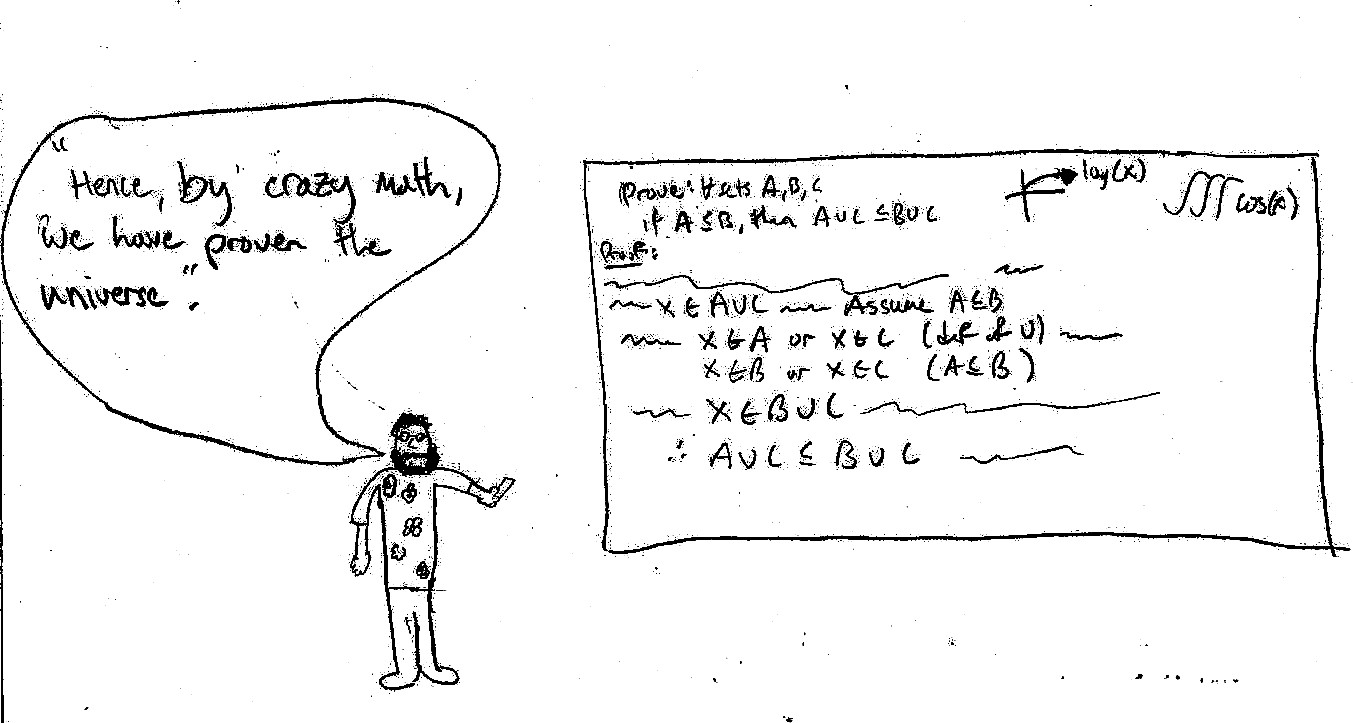 "Hence, by crazy math,
we have proven the
universe".
Prove: ∀ sets A, B, C
if A ⊆ B, then A ∪ C ⊆ B ∪ C
Proof:
x ∈ A ∪ C Assume A ⊆ B
x ∈ A or x ∈ C (def of ∪)
x ∈ B or x ∈ C (A ⊆ B)
x ∈ B ∪ C
∴ A ∪ C ⊆ B ∪ C
log(x)
∫∫∫ cos(x)